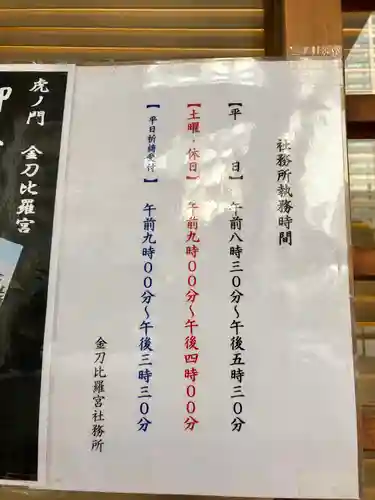 社務所執務時間
【平　　日】　午前八時三〇分～午後五時三〇分
【土曜・休日】　午前九時〇〇分～午後四時〇〇分
【平日祈祷受付】　午前九時〇〇分～午後三時三〇分
金刀比羅宮社務所
虎ノ門　金刀比羅宮